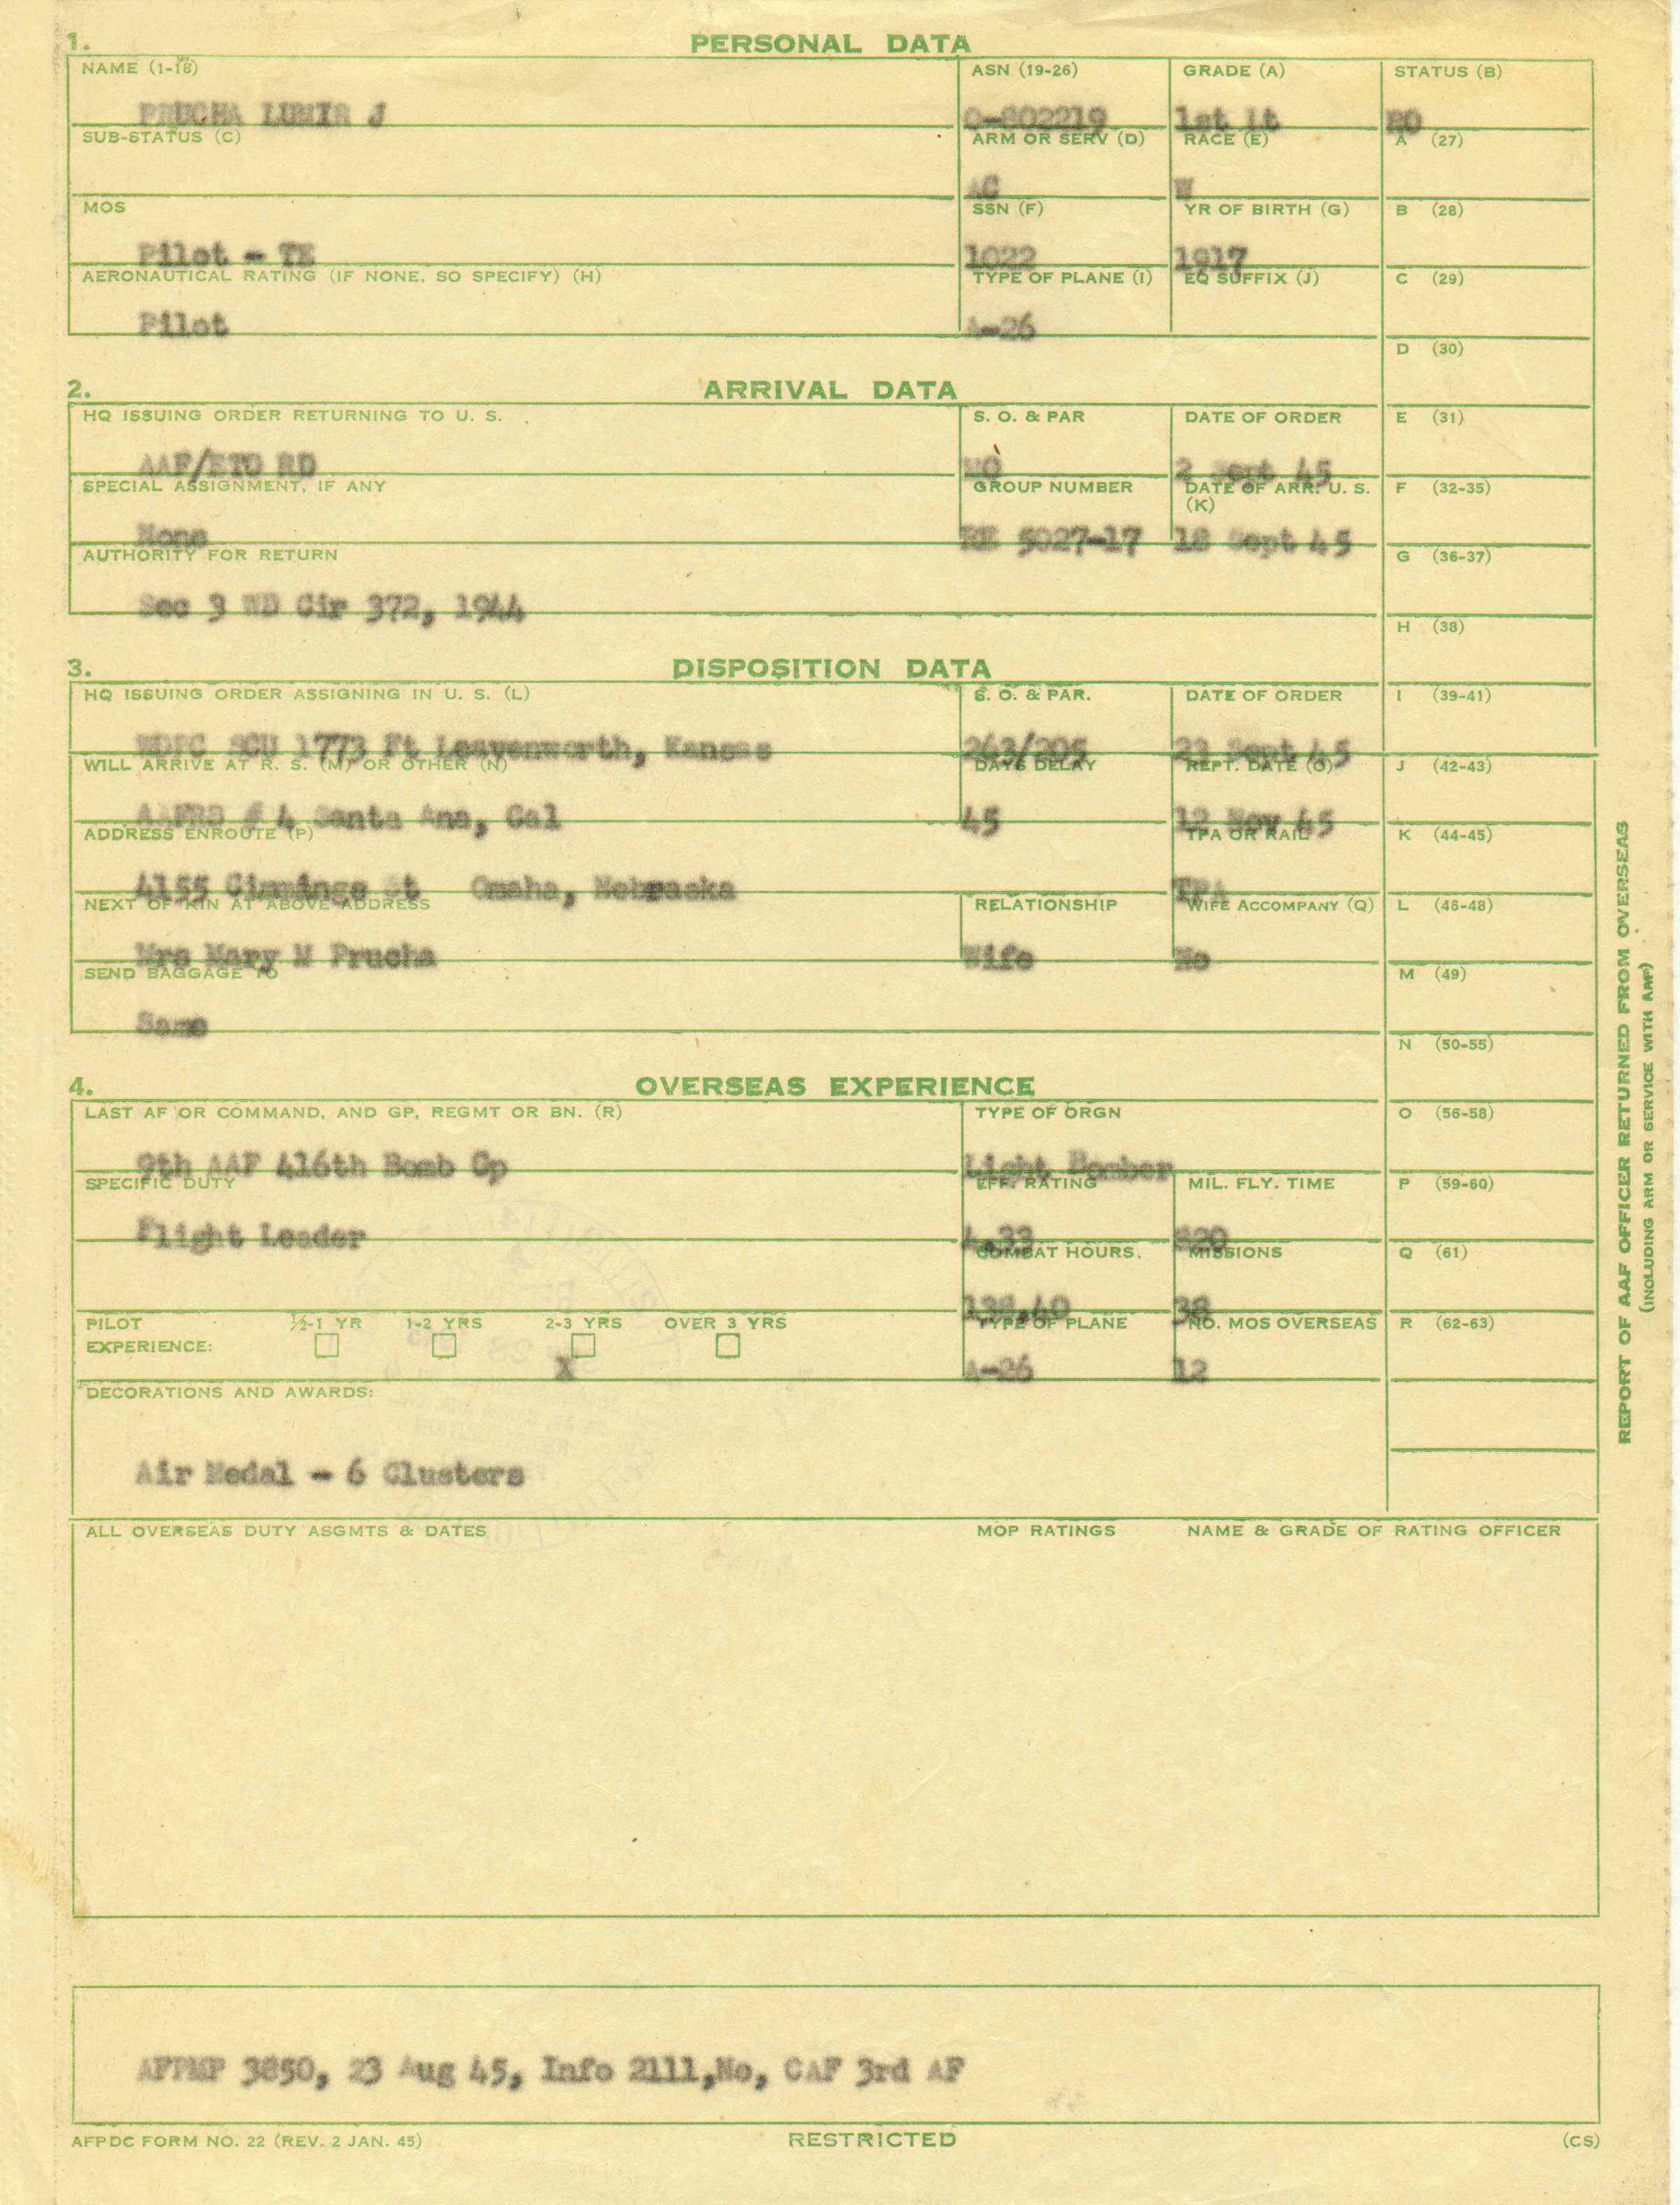 1. PERSONAL DATA
NAME (1-18) ASN (19-26) GRADE (A) STATUS (B)
PRUCHA LUMIR J O-802219 1st Lt RO
SUB-STATUS (C) ARM OR SERV (D) RACE (E) A (27)
AC W
MOS SSN (F) YR OF BIRTH (G) B (28)
Pilot - TE 1022 1917
AERONAUTICAL RATING (IF NONE, SO SPECIFY) (H) TYPE OF PLANE (I) EQ SUFFIX (J) C (29)
Pilot A-26
D (30)
2. ARRIVAL DATA
HQ ISSUING ORDER RETURNING TO U. S. S. O. & PAR DATE OF ORDER E (31)
AAF/ETO RD MO 2 Sept 45
SPECIAL ASSIGNMENT, IF ANY GROUP NUMBER DATE OF ARR. U. S. (K) F (32-35)
None RE 5027-17 18 Sept 45
AUTHORITY FOR RETURN G (36-37)
Sec 3 WD Cir 372, 1944
H (38)
3. DISPOSITION DATA
HQ ISSUING ORDER ASSIGNING IN U. S. (L) S. O. & PAR. DATE OF ORDER I (39-41)
WDPC SCU 1773 Ft Leavenworth, Kansas 263/205 23 Sept 45
WILL ARRIVE AT R. S. (M) OR OTHER (N) DAYS DELAY REPT. DATE (O) J (42-43)
AAFRS # 4 Santa Ana, Cal 45 12 Nov 45
ADDRESS ENROUTE (P) TPA OR RAIL K (44-45)
4155 St Omaha, Nebraska TPA
NEXT OF KIN AT ABOVE ADDRESS RELATIONSHIP WIFE ACCOMPANY (Q) L (46-48)
Mrs Mary M Prucha Wife No
SEND BAGGAGE TO M (49)
Same
N (50-55)
4. OVERSEAS EXPERIENCE
LAST AF OR COMMAND, AND GP, REGMT OR BN. (R) TYPE OF ORGN O (56-58)
9th AAF 416th Bomb Gp Light Bomber
SPECIFIC DUTY EFF. RATING MIL. FLY. TIME P (59-60)
Flight Leader 4.33 820
COMBAT HOURS. MISSIONS Q (61)
138.40 38
PILOT EXPERIENCE: ½-1 YR 1-2 YRS 2-3 YRS OVER 3 YRS TYPE OF PLANE NO. MOS OVERSEAS R (62-63)
X A-26 12
DECORATIONS AND AWARDS:
Air Medal - 6 Clusters
ALL OVERSEAS DUTY ASGMTS & DATES MOP RATINGS NAME & GRADE OF RATING OFFICER
AFPMP 3850, 23 Aug 45, Info 2111,No, CAF 3rd AF
AFPDC FORM NO. 22 (REV. 2 JAN. 45) RESTRICTED (CS)
REPORT OF AAF OFFICER RETURNED FROM OVERSEAS
(INCLUDING ARM OR SERVICE WITH AAF)